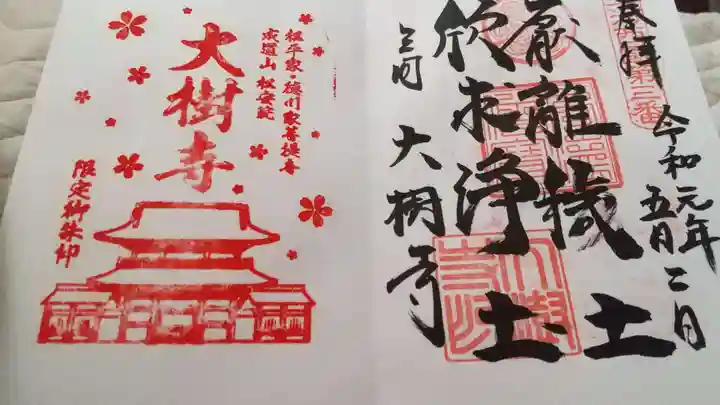 奉拝
第二番
令和元年
五月二日
厭離穢土
欣求浄土
三河 大樹寺
松平家・徳川家菩提寺
成道山 松安院
大樹寺
限定御朱印